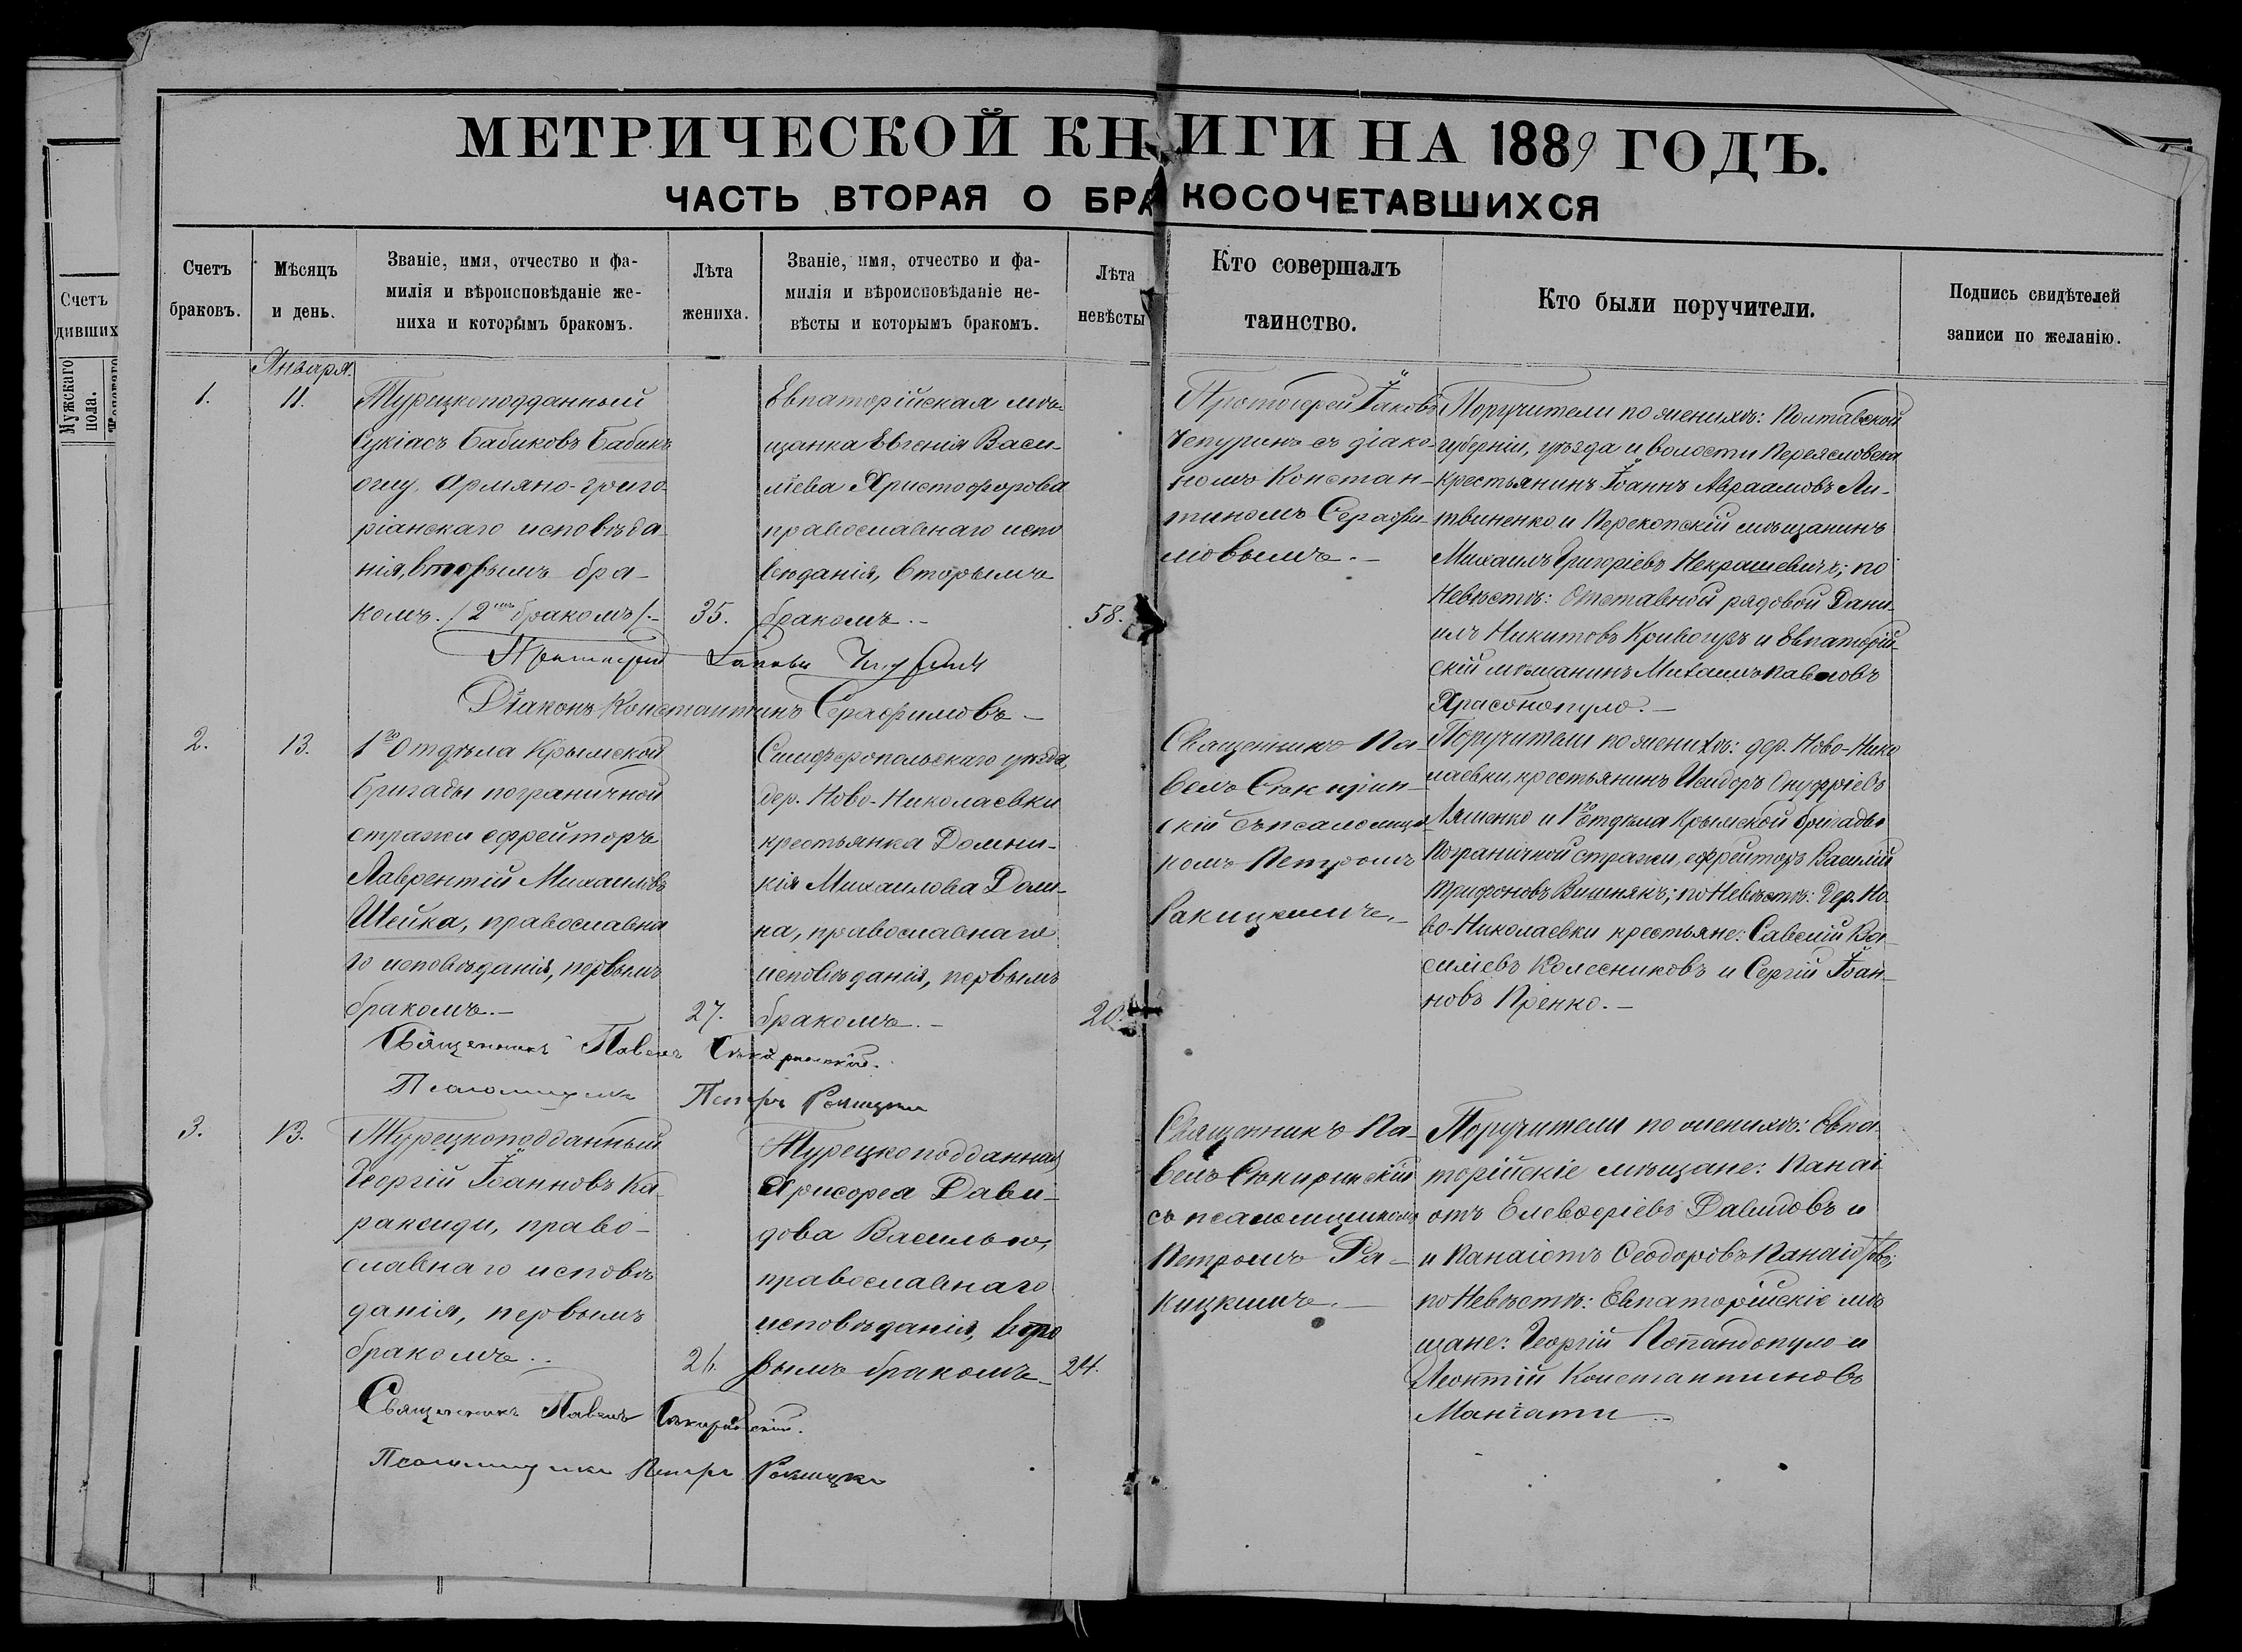 МЕТРИЧЕСКОЙ КНИГИ НА 1889 ГОДЪ.
ЧАСТЬ ВТОРАЯ О БРАКОСОЧЕТАВШИХСЯ
Счетъ
дившихъ
Мужскаго
пола.
Счетъ
браковъ.
Мѣсяцъ
и день.
Званіе, имя, отчество и фа-
милія и вѣроисповѣданіе же-
ниха и которымъ бракомъ.
Лѣта
жениха.
Званіе, имя, отчество и фа-
милія и вѣроисповѣданіе не-
вѣсты и которымъ бракомъ.
Лѣта
невѣсты
Кто совершалъ
таинство.
Кто были поручители.
Подпись свидѣтелей
записи по желанію.
Января.
1.
11.
Турецкоподданный
Сукіасъ Бабиковъ Бабикъ
оглу, Армяно-григо-
ріанскаго исповѣда-
нія, вторымъ бра-
комъ. /2мъ бракомъ/.-
35.
Евпаторійская мѣ-
щанка Евгенія Васи-
ліева Христофорова
православнаго испо
вѣданія, вторымъ
бракомъ.-
58.
Протоіерей Іаковъ
Чепуринъ съ діако-
номъ Констан-
тиномъ Серафи-
мовымъ.-
Поручители по женихѣ: Полтавской
губерніи, уѣзда и волости Переясловска
крестьянинъ Іоаннъ Авраамовъ Ли-
твиненко и Перекопскій мѣщанинъ
Михаилъ Григоріевъ Некрашевичъ; по
Невѣстѣ: Отставной рядовой Дані-
илъ Никитовъ Криво и Евпаторій-
скій мѣщанинъ Михаилъ Павловъ
Храсонопуло.-
Протоіерей Іаковъ Чепуринъ
Діаконъ Константинъ Серафимовъ-
2.
13.
1го Отдѣла Крымской
бригады пограничной
стражи ефрейторъ
Лаврентій Михаиловъ
Шейка, православна
го исповѣданія, первымъ
бракомъ.-
27.
Симферопольскаго уѣзда,
дер. Ново-Николаевки
крестьянка Домни-
кія Михаилова Доли-
на, православнаго
исповѣданія, первымъ
бракомъ.-
20.
Священникъ Па-
велъ Сѣкирин-
скій съ псаломщи
комъ Петромъ
Ракицкимъ.-
Поручители по женихѣ: дер. Ново-Нико
лаевки, крестьянинъ Исидоръ Онуфріевъ
Ляшенко и 1го отдѣла Крымской бригады
пограничной стражи, ефрейторъ Василій
Трифоновъ Вишнякъ; по Невѣстѣ: Дер. Но-
во-Николаевки крестьяне: Савелій Ва-
силіевъ Колесниковъ и Сергій Іоан-
новъ Пренко.-
Священникъ Павелъ Сѣкиринскій.
Псаломщикъ Петръ Ракицкій
3.
13.
Турецкоподданный
Георгій Іоанновъ Ка-
раксиди, право-
славнаго исповѣ
данія, первымъ
бракомъ..
26.
Турецкоподданная
Дави-
дова Василью,
православнаго
исповѣданія,
вымъ бракомъ-
24.
Священникъ Па-
велъ Сѣкиринскій
съ псаломщикомъ
Петромъ Ра-
кицкимъ.-
Поручители по женихѣ: Евпа-
торійскіе мѣщане: Панаі
отъ Елевферіевъ Давидовъ и
и Панаіотъ Ѳеодоровъ Панаіотовъ;
по Невѣстѣ: Евпаторійскіе мѣ
щане: Георгій Попандопуло и
Леонтій Константиновъ
Мангати
Священникъ Павелъ Сѣкиринскій.
Псаломщикъ Петръ Ракицкій